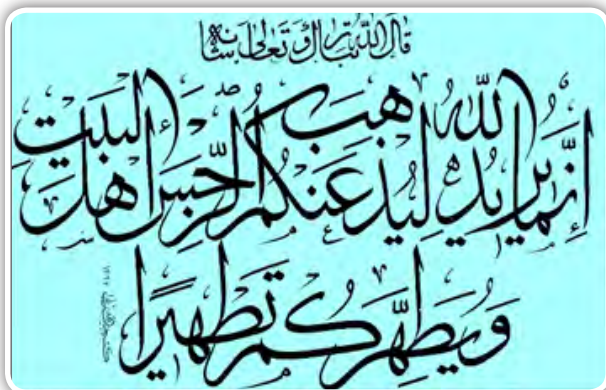 قال الله تبارك وتعالى شأنه
إنما يريد الله ليذهب عنكم الرجس أهل البيت
ويطهركم تطهيرًا